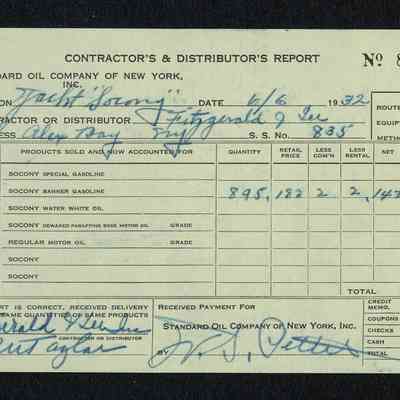 CONTRACTOR'S & DISTRIBUTOR'S REPORT
Nº 8
DARD OIL COMPANY OF NEW YORK, INC.
ON Yacht "Socony" DATE 6/6 1932
CTOR OR DISTRIBUTOR Fitzgerald & Lee
ESS Alex Bay N.Y. S. S. No. 835
ROUTE
EQUIP
METHO
PRODUCTS SOLD AND NOW ACCOUNTED FOR QUANTITY RETAIL PRICE LESS COM'N LESS RENTAL NET
SOCONY SPECIAL GASOLINE
SOCONY BANNER GASOLINE 895 182 2 2
SOCONY WATER WHITE OIL
SOCONY DEWAXED PARAFFINE BASE MOTOR OIL GRADE
REGULAR MOTOR OIL GRADE
SOCONY
SOCONY
TOTAL
RT IS CORRECT, RECEIVED DELIVERY
SAME QUANTITIES OF SAME PRODUCTS
gerald & Lee Inc
Taylor
CONTRACTOR OR DISTRIBUTOR
RECEIVED PAYMENT FOR
STANDARD OIL COMPANY OF NEW YORK, INC.
BY
CREDIT MEMO.
COUPONS
CHECKS
CASH
TOTAL